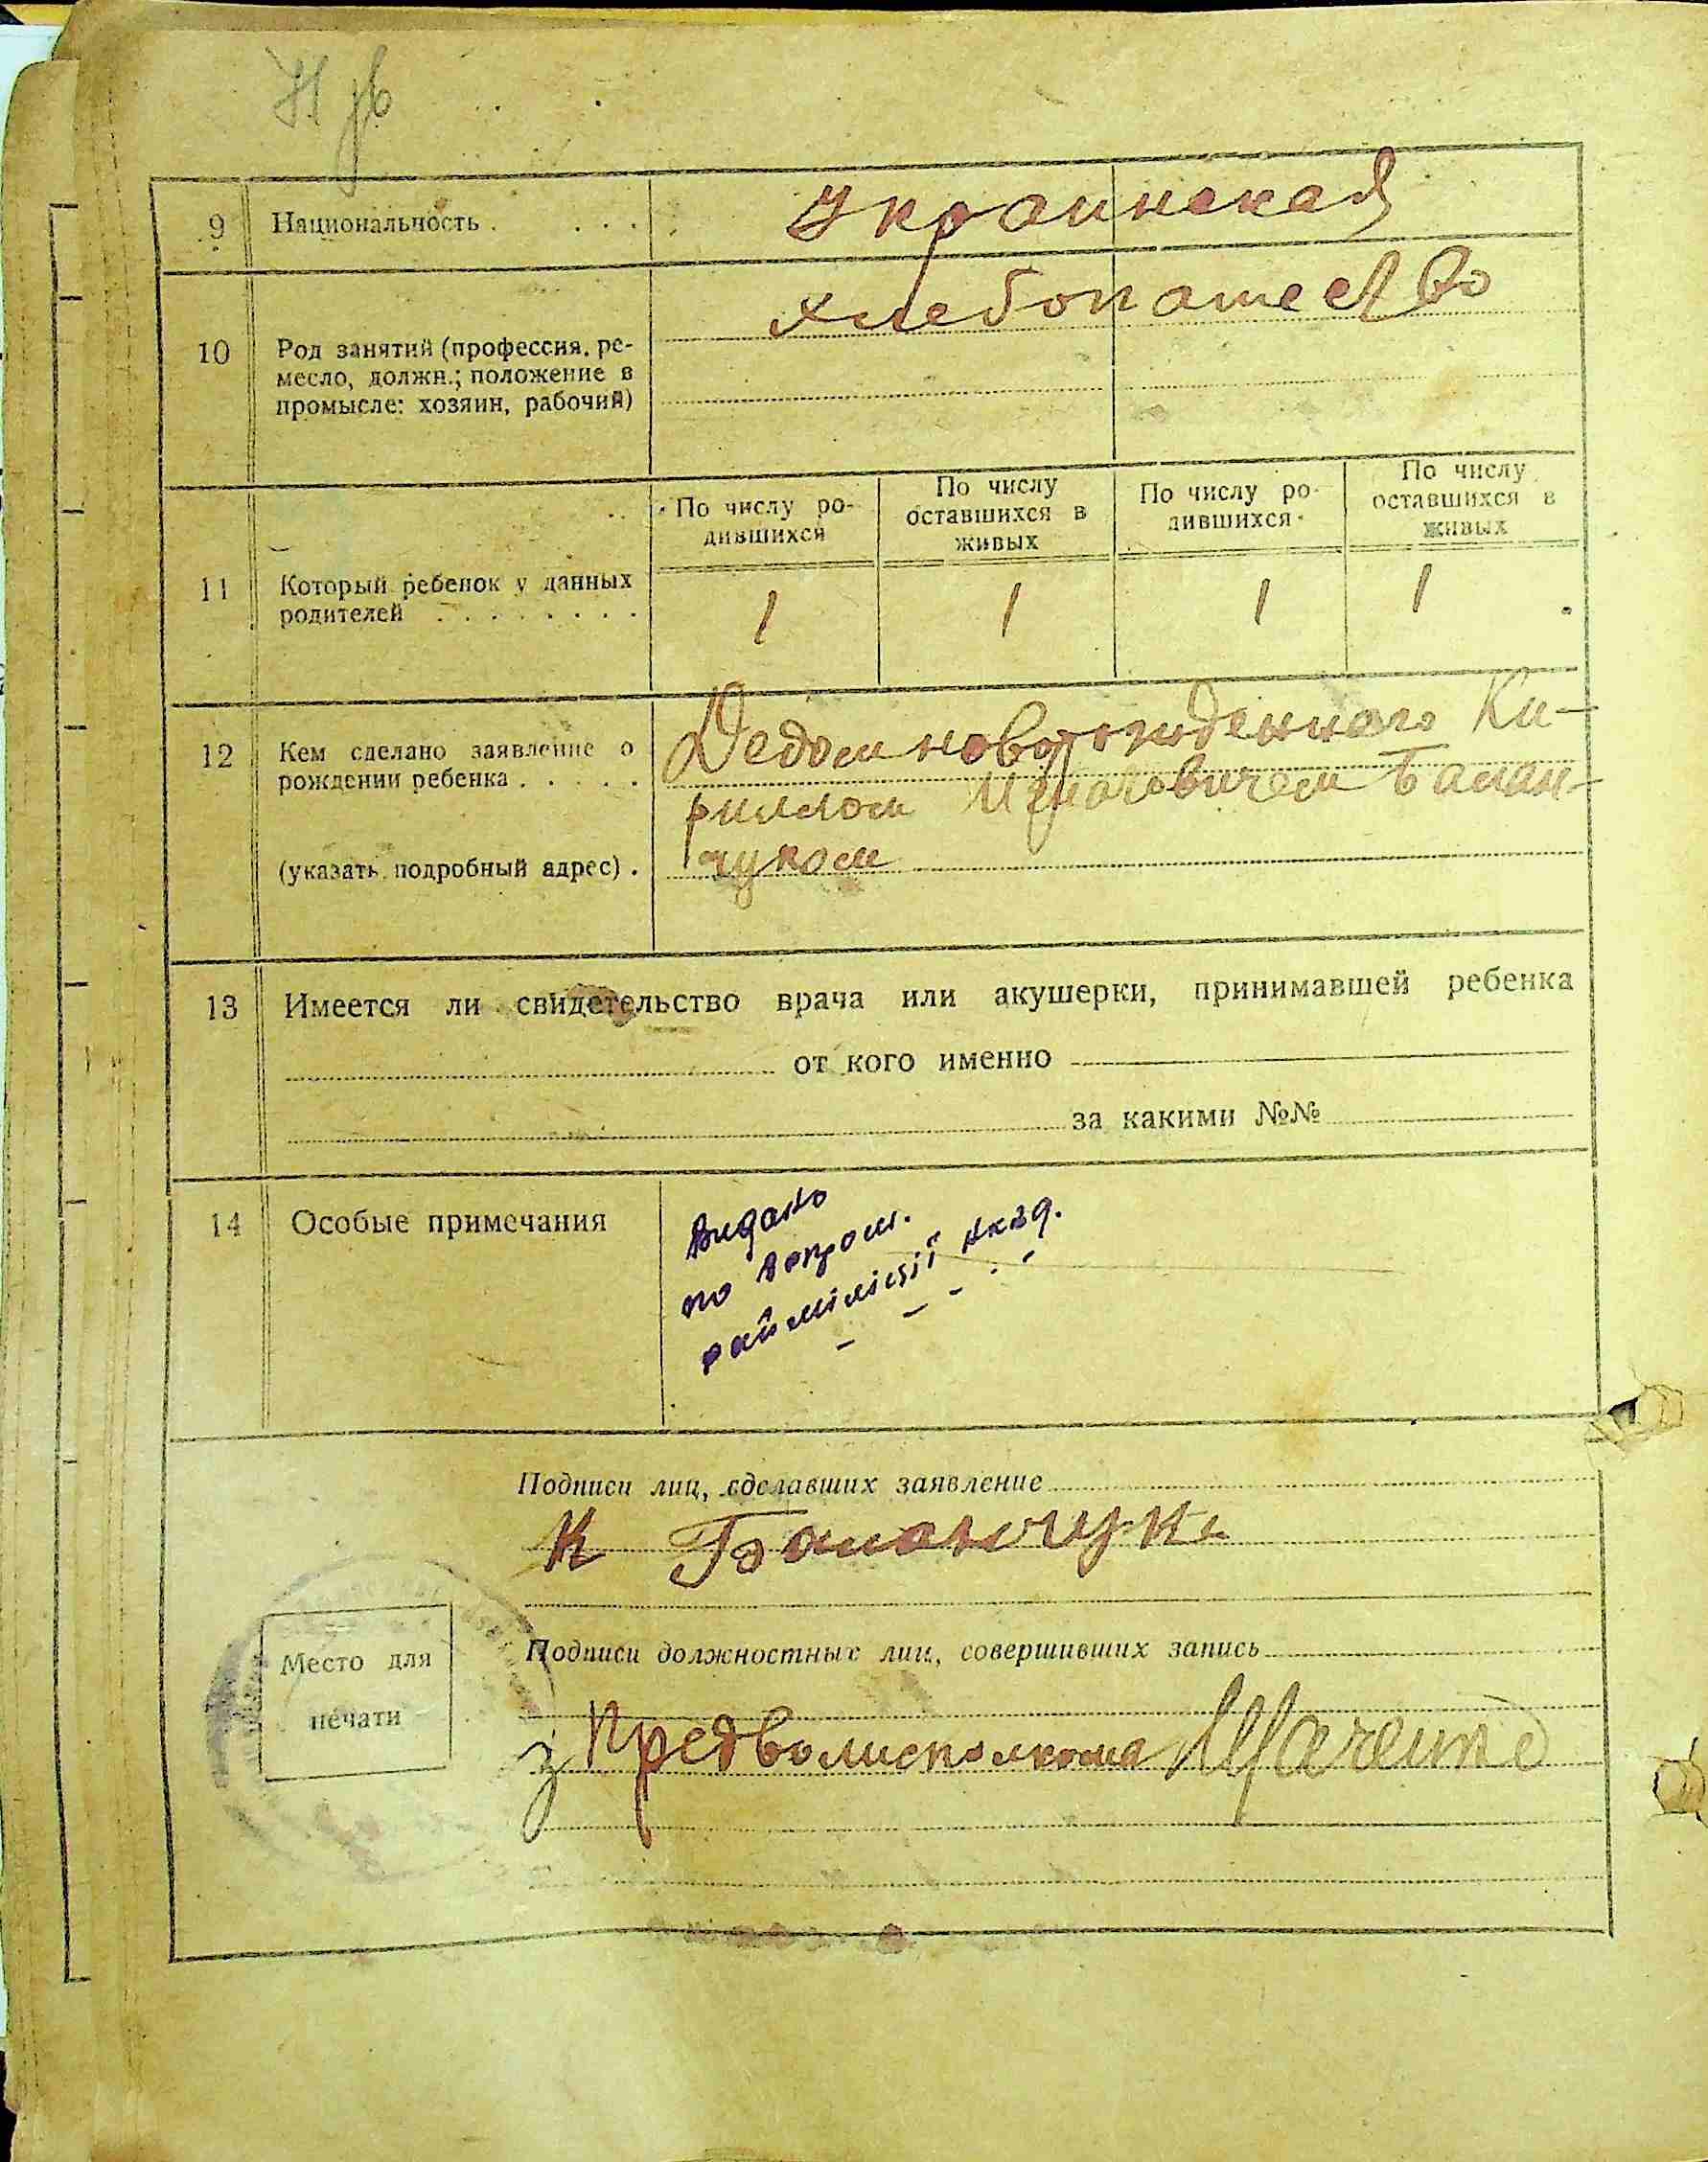 9 Национальность . . . . Украинская
10 Род занятий (профессия, ре-
месло, должн.; положение в
промысле: хозяин, рабочий)
хлебопашество
По числу ро-
дившихся
По числу
оставшихся в
живых
По числу ро-
дившихся
По числу
оставшихся в
живых
11 Который ребенок у данных
родителей . . . . . . . .
1 1 1 1
12 Кем сделано заявление о
рождении ребенка . . . . .
(указать подробный адрес) .
Дедом новорожденного Ки-
риллом Игнатовичем Балан-
чуком
13 Имеется ли свидетельство врача или акушерки, принимавшей ребенка
от кого именно
за какими №№
14 Особые примечания
Видано
по
райміліції
Подписи лиц, сделавших заявление
К Баланчукъ
Подписи должностных лиц, совершивших запись
Место для
печати
з Предволисполкома